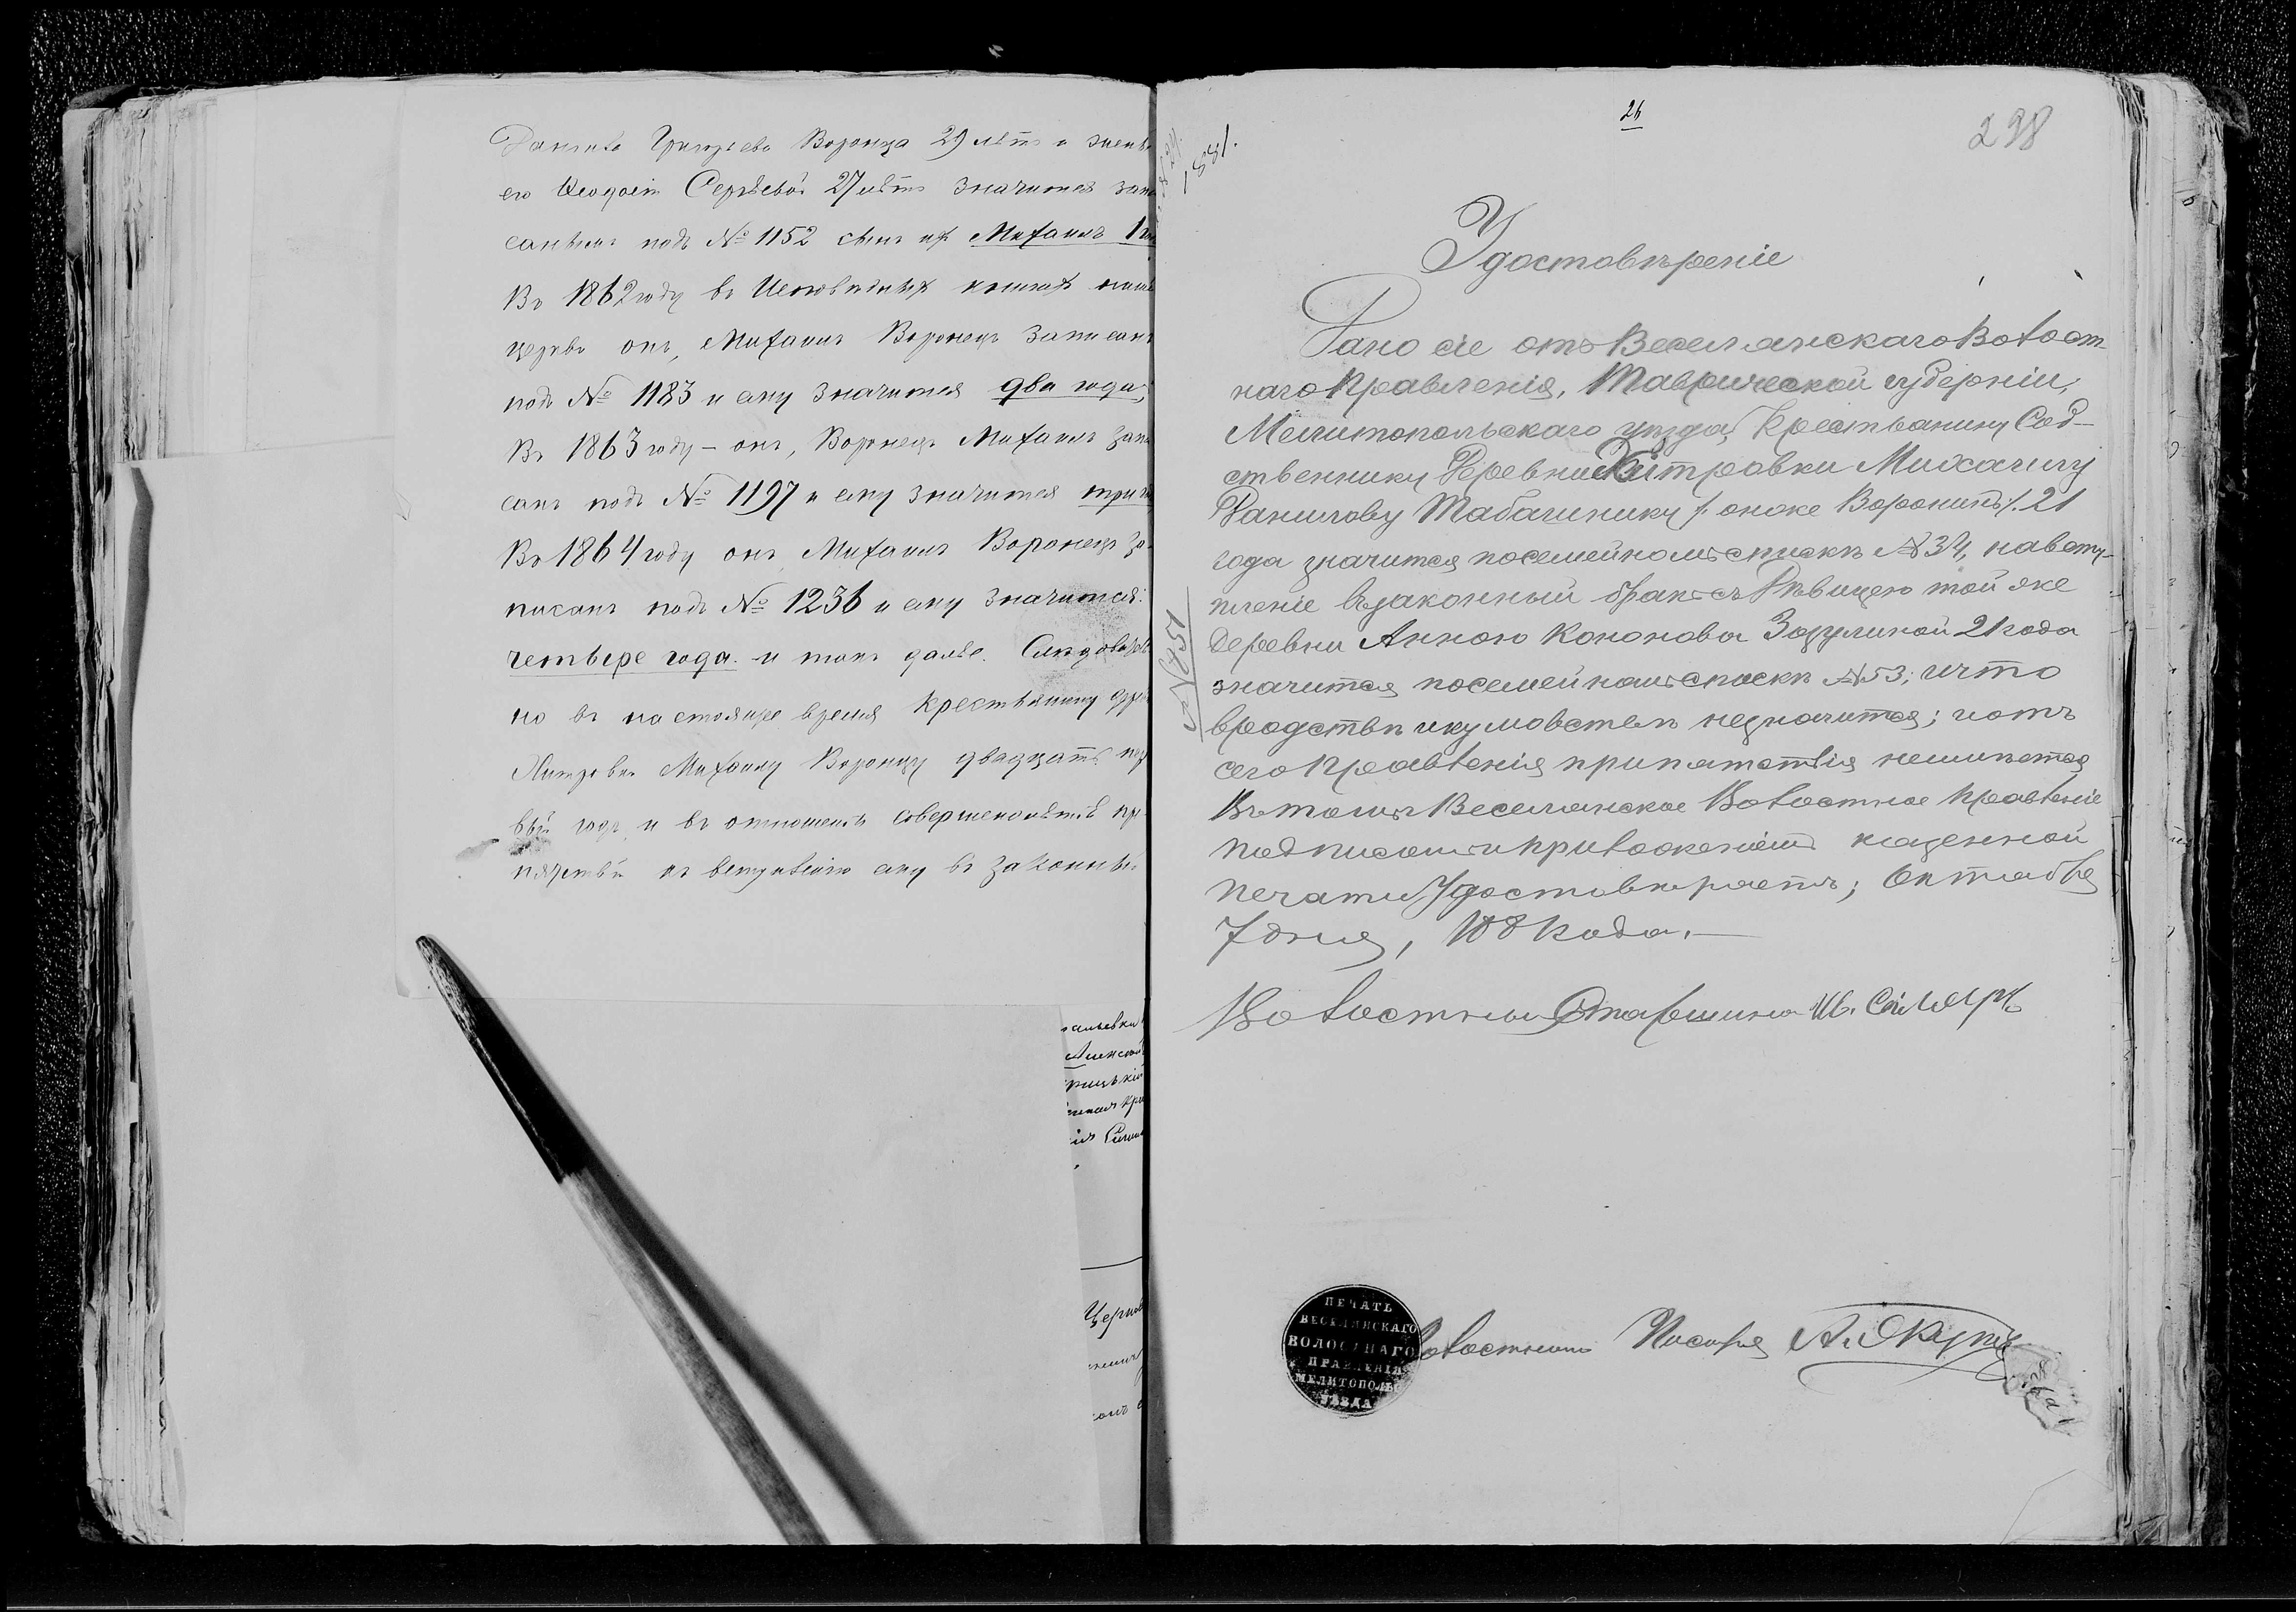 Данила Григорьева Воронца 29 лѣтъ и жены
его Ѳеодосіи Сергѣевой 27 лѣтъ значится запи
саннымъ подъ № 1152 сынъ ихъ Михаилъ 1 го
Въ 1862 году въ Исповѣдныхъ книгахъ
церкви онъ, Михаилъ Воронецъ записанъ
подъ № 1183 и ему значится два года;
Въ 1863 году – онъ, Воронецъ Михаилъ запи
санъ подъ № 1197 и ему значится три
Въ 1864 году онъ Михаилъ Воронецъ за-
писанъ подъ № 1236 и ему значится
четыре года. и такъ далѣе. Слѣдователь
но въ настоящее время крестьянину дерев
Хитровки Михаилу Воронцу двадцать пер
вый годъ и въ отношеніи совершеннолѣтія пре
пятствій къ вступленію ему въ законный
аньевки
Черниг
26
298
1881.
Удостовѣреніе
Дано сіе отъ Веселянскаго Волост-
наго Правленія, Таврической губерніи,
Мелитопольскаго уѣзда, Крестьянину Соб-
ственнику Деревни Хитровки Михаилу
Данилову Табачнику /: онже Воронинъ :/ 21
года значится посемейномъ спискѣ № 34, навсту-
пленіе въ законный бракъ съ Дѣвицею той же
деревни Анною Кононовой Зозулиной 21 года
значится посемейномъ спискѣ № 53; что
вродствѣ икумовствѣ незначится; иотъ
сего Правленія припятствія неимѣется
Въ томъ Веселянское Волостное Правленіе
подписомъ и приложеніемъ казенной
печати Удостовѣряетъ; Октября
7 дня, 1881 года.—
№ 751
Волостный Старшина Ив.
ПЕЧАТЬ
ВЕСЕЛЯНСКАГО
ВОЛОСТНАГО
ПРАВЛЕНІЯ
МЕЛИТОПОЛЬС
УѢЗДА
Волостный Писарь А.